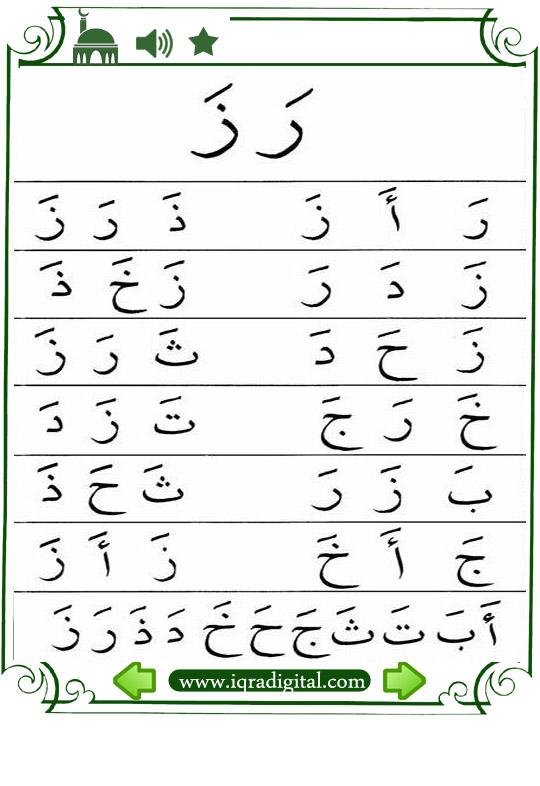 رَ زَ
رَ أَ زَ ذَ رَ زَ
زَ دَ رَ زَ خَ ذَ
زَ حَ دَ ثَ رَ زَ
خَ رَ جَ تَ زَ دَ
بَ زَ رَ ثَ حَ ذَ
جَ أَ خَ زَ أَ زَ
أَ بَ تَ ثَ جَ حَ خَ دَ ذَ رَ زَ
www.iqradigital.com